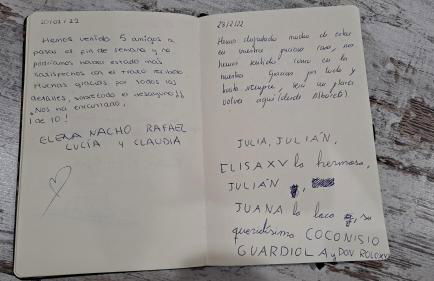 20/02/22
Hemos venido 5 amigos a
pasar el fin de semana y no
podríamos haber estado más
satisfechos con el trato recibido
Muchas gracias por todos los
detalles, sobretodo el desayuno!!
¡Nos ha encantado,
¡de 10!
ELENA NACHO RAFAEL
LUCÍA Y CLAUDIA
28/2/22
Hemos disfrutado mucho de estar
en vuestra preciosa casa, nos
hemos sentido como en la
nuestra Gracias por todo y
hasta siempre, será un placer
volver aquí (desde Albacete).
JULIA, JULIÁN,
ELISA XV la hermosa,
JULIÁN
JUANA la loca y, su
queridísimo COCONISIO
GUARDIOLA y DON ROLOXV